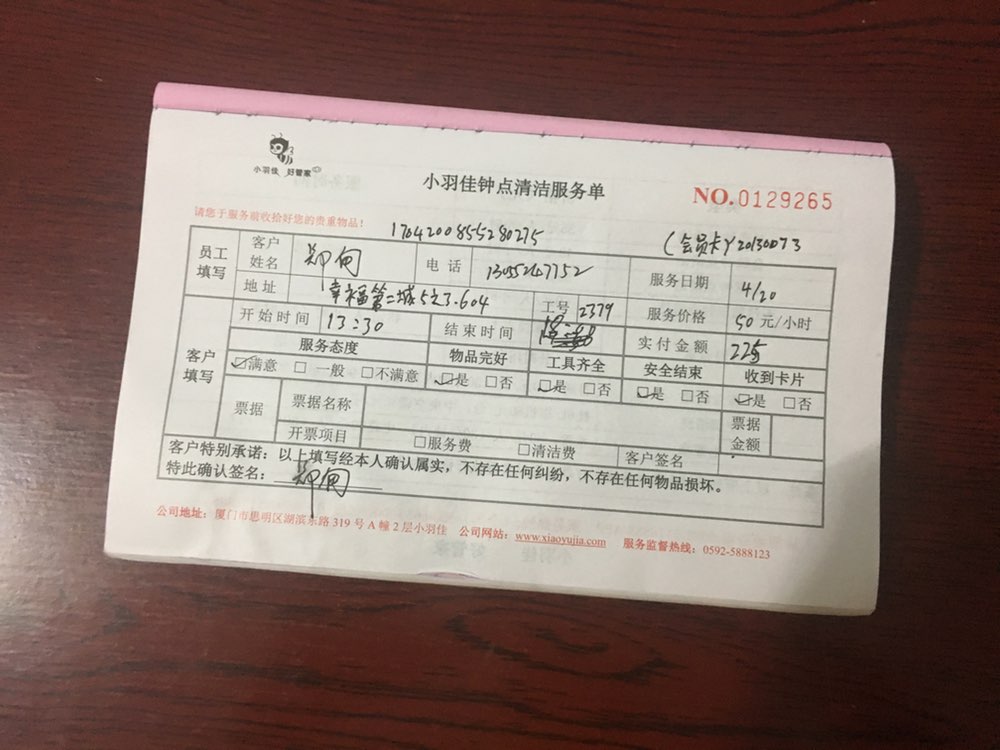 小羽佳 好管家
小羽佳钟点清洁服务单
NO.0129265
请您于服务前收拾好您的贵重物品！
1704200855280275
(会员卡)Y20130073
员工填写 客户姓名 郑向 电话 13055247752 服务日期 4/20
地址 幸福第二城 604 工号 2379 服务价格 50 元/小时
客户填写 开始时间 13:30 结束时间 实付金额 225
服务态度 物品完好 工具齐全 安全结束 收到卡片
☑满意 □一般 □不满意 ☑是 □否 ☑是 □否 ☑是 □否 ☑是 □否
票据 票据名称 票据金额
开票项目 □服务费 □清洁费 客户签名
客户特别承诺：以上填写经本人确认属实，不存在任何纠纷，不存在任何物品损坏。
特此确认签名：郑向
公司地址：厦门市思明区湖滨东路 319 号 A 幢 2 层小羽佳 公司网站：www.xiaoyujia.com 服务监督热线：0592-5888123